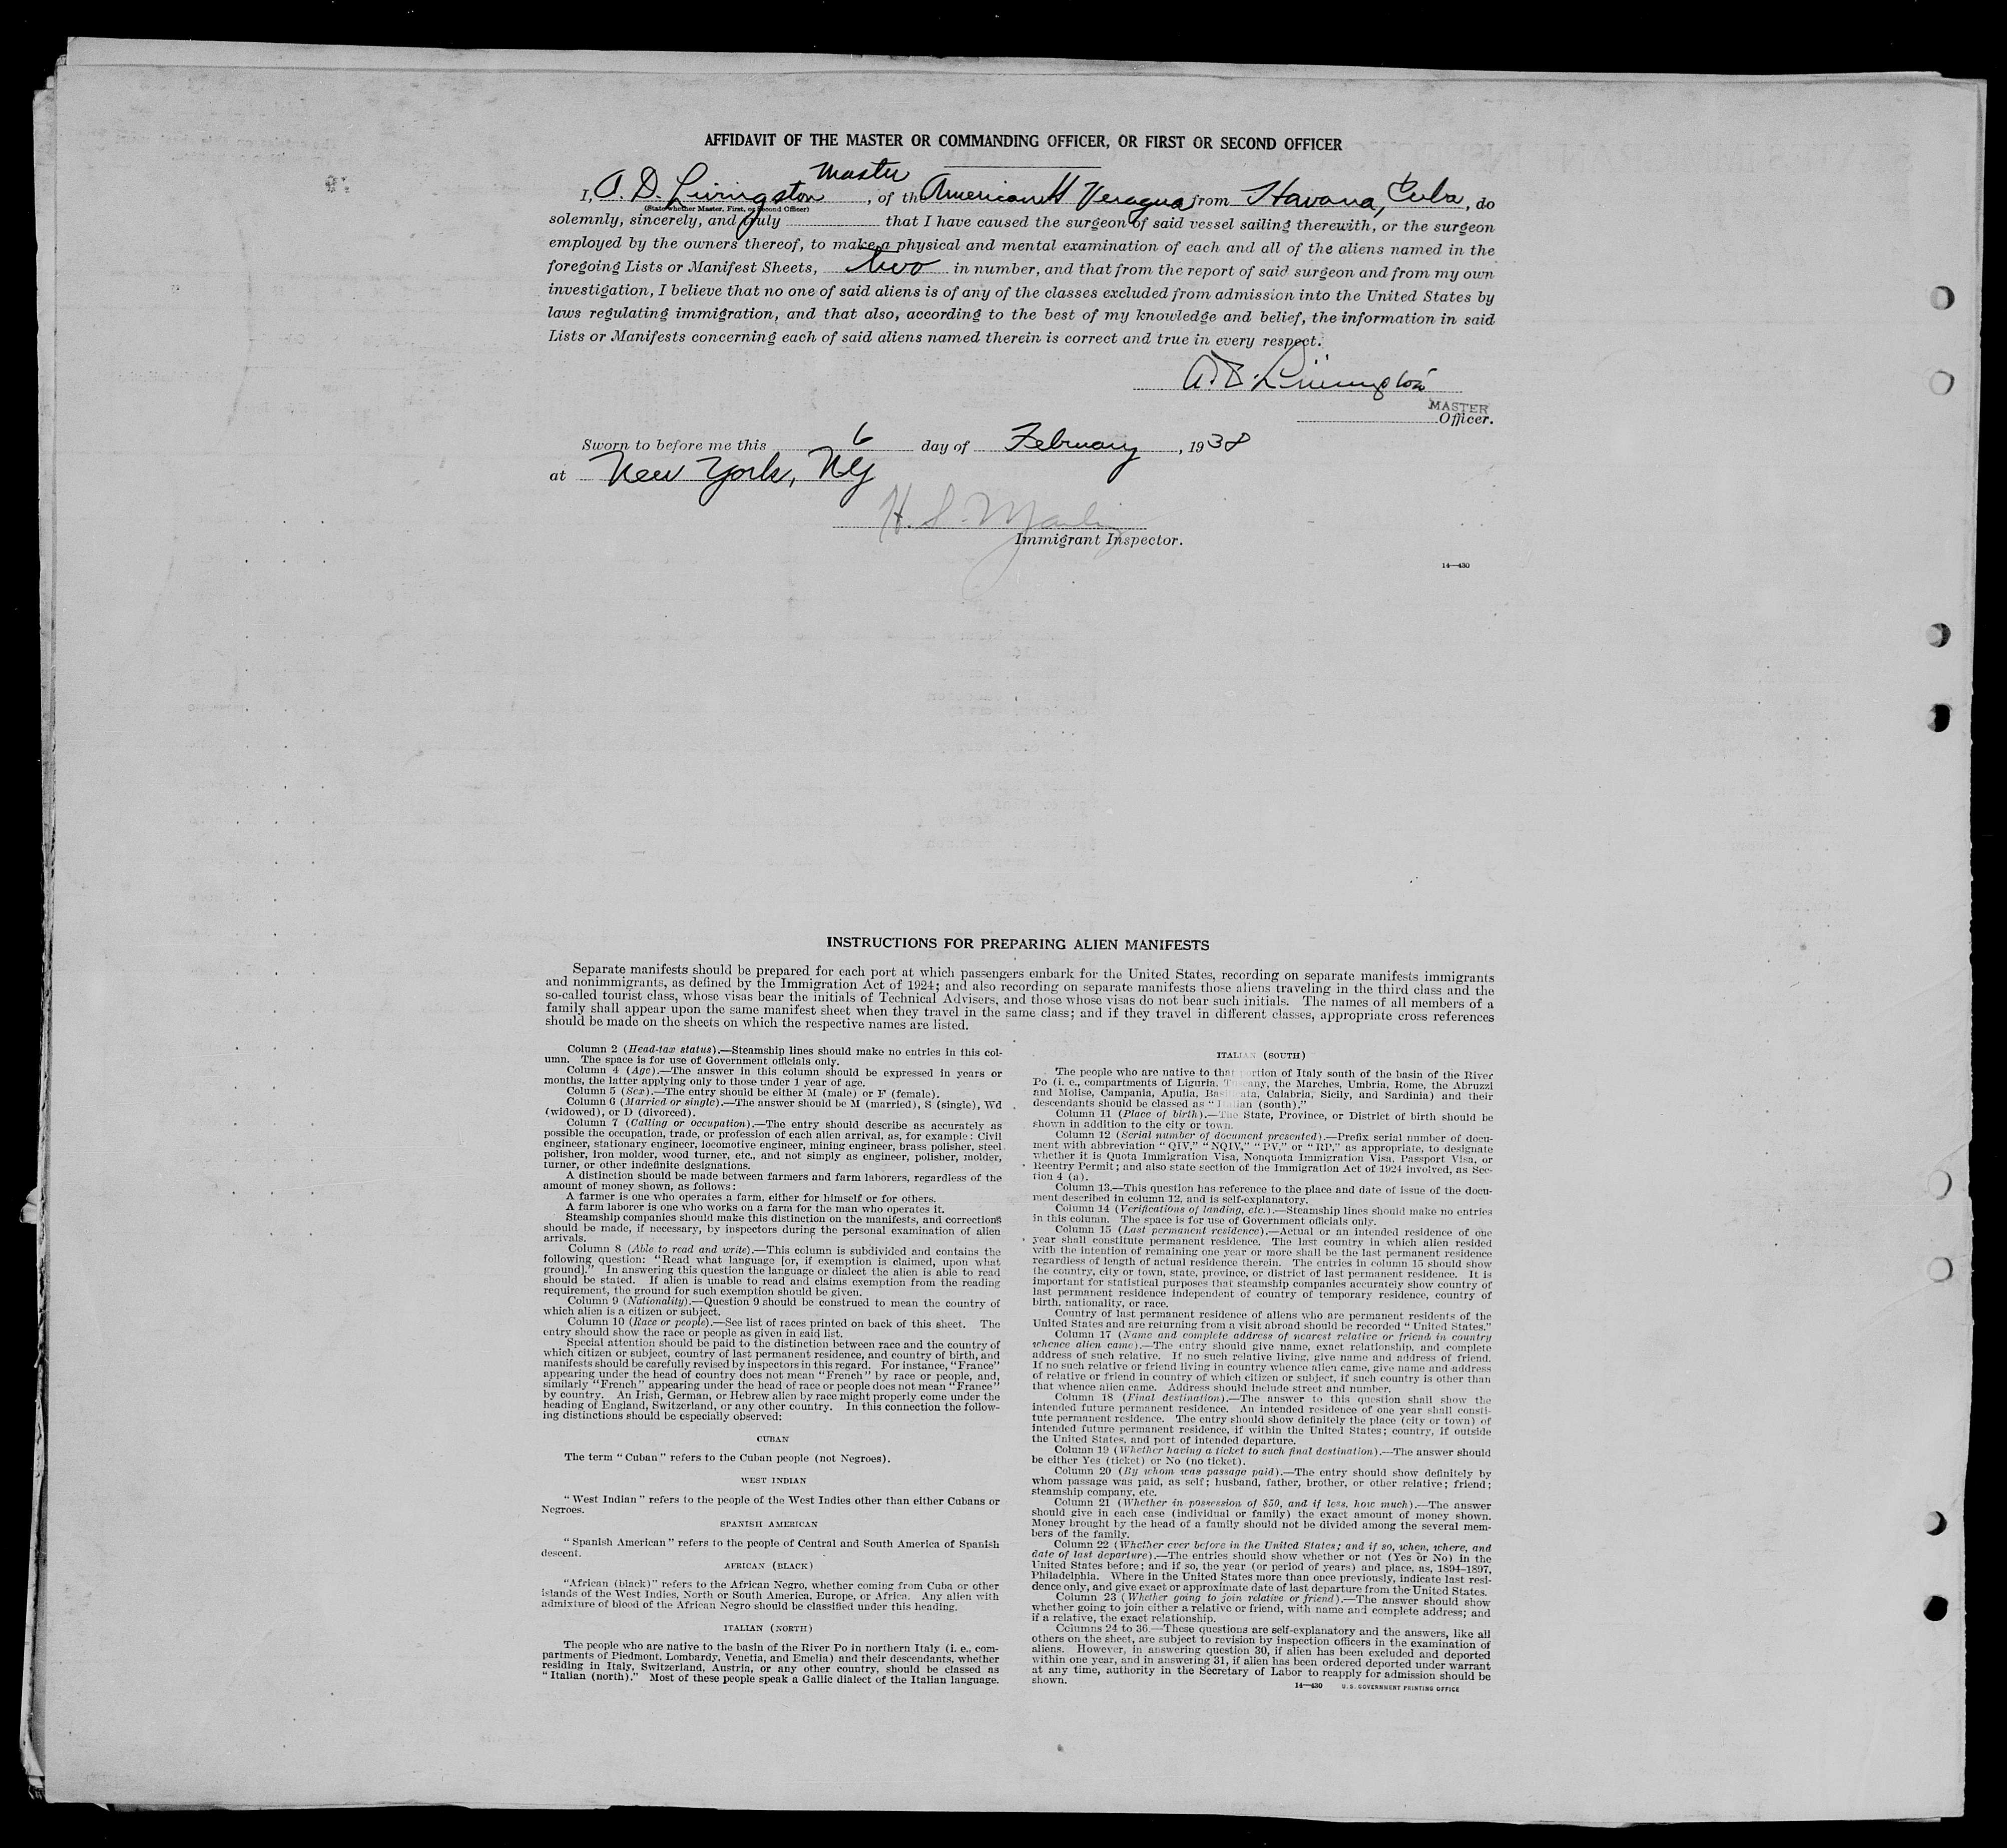 AFFIDAVIT OF THE MASTER OR COMMANDING OFFICER, OR FIRST OR SECOND OFFICER
Master
I, A. D. Livingston, of the American Veragua from Havana, Cuba, do
(State whether Master, First, or Second Officer)
solemnly, sincerely, and truly that I have caused the surgeon of said vessel sailing therewith, or the surgeon
employed by the owners thereof, to make a physical and mental examination of each and all of the aliens named in the
foregoing Lists or Manifest Sheets, two in number, and that from the report of said surgeon and from my own
investigation, I believe that no one of said aliens is of any of the classes excluded from admission into the United States by
laws regulating immigration, and that also, according to the best of my knowledge and belief, the information in said
Lists or Manifests concerning each of said aliens named therein is correct and true in every respect.
A. D. Livingston
MASTER
Officer.
Sworn to before me this 6 day of February, 1938
at New York, NY
H. S.
Immigrant Inspector.
14—430
INSTRUCTIONS FOR PREPARING ALIEN MANIFESTS
Separate manifests should be prepared for each port at which passengers embark for the United States, recording on separate manifests immigrants
and nonimmigrants, as defined by the Immigration Act of 1924; and also recording on separate manifests those aliens traveling in the third class and the
so-called tourist class, whose visas bear the initials of Technical Advisers, and those whose visas do not bear such initials. The names of all members of a
family shall appear upon the same manifest sheet when they travel in the same class; and if they travel in different classes, appropriate cross references
should be made on the sheets on which the respective names are listed.
Column 2 (Head-tax status).—Steamship lines should make no entries in this col-
umn. The space is for use of Government officials only.
Column 4 (Age).—The answer in this column should be expressed in years or
months, the latter applying only to those under 1 year of age.
Column 5 (Sex).—The entry should be either M (male) or F (female).
Column 6 (Married or single).—The answer should be M (married), S (single), Wd
(widowed), or D (divorced).
Column 7 (Calling or occupation).—The entry should describe as accurately as
possible the occupation, trade, or profession of each alien arrival, as, for example: Civil
engineer, stationary engineer, locomotive engineer, mining engineer, brass polisher, steel
polisher, iron molder, wood turner, etc., and not simply as engineer, polisher, molder,
turner, or other indefinite designations.
A distinction should be made between farmers and farm laborers, regardless of the
amount of money shown, as follows:
A farmer is one who operates a farm, either for himself or for others.
A farm laborer is one who works on a farm for the man who operates it.
Steamship companies should make this distinction on the manifests, and corrections
should be made, if necessary, by inspectors during the personal examination of alien
arrivals.
Column 8 (Able to read and write).—This column is subdivided and contains the
following question: "Read what language [or, if exemption is claimed, upon what
ground]." In answering this question the language or dialect the alien is able to read
should be stated. If alien is unable to read and claims exemption from the reading
requirement, the ground for such exemption should be given.
Column 9 (Nationality).—Question 9 should be construed to mean the country of
which alien is a citizen or subject.
Column 10 (Race or people).—See list of races printed on back of this sheet. The
entry should show the race or people as given in said list.
Special attention should be paid to the distinction between race and the country of
which citizen or subject, country of last permanent residence, and country of birth, and
manifests should be carefully revised by inspectors in this regard. For instance, "France"
appearing under the head of country does not mean "French" by race or people, and,
similarly "French" appearing under the head of race or people does not mean "France"
by country. An Irish, German, or Hebrew alien by race might properly come under the
heading of England, Switzerland, or any other country. In this connection the follow-
ing distinctions should be especially observed:
CUBAN
The term "Cuban" refers to the Cuban people (not Negroes).
WEST INDIAN
"West Indian" refers to the people of the West Indies other than either Cubans or
Negroes.
SPANISH AMERICAN
"Spanish American" refers to the people of Central and South America of Spanish
descent.
AFRICAN (BLACK)
"African (black)" refers to the African Negro, whether coming from Cuba or other
islands of the West Indies, North or South America, Europe, or Africa. Any alien with
admixture of blood of the African Negro should be classified under this heading.
ITALIAN (NORTH)
The people who are native to the basin of the River Po in northern Italy (i. e., com-
partments of Piedmont, Lombardy, Venetia, and Emelia) and their descendants, whether
residing in Italy, Switzerland, Austria, or any other country, should be classed as
"Italian (north)." Most of these people speak a Gallic dialect of the Italian language.
ITALIAN (SOUTH)
The people who are native to that portion of Italy south of the basin of the River
Po (i. e., compartments of Liguria, Tuscany, the Marches, Umbria, Rome, the Abruzzi
and Molise, Campania, Apulia, Basilicata, Calabria, Sicily, and Sardinia) and their
descendants should be classed as "Italian (south)."
Column 11 (Place of birth).—The State, Province, or District of birth should be
shown in addition to the city or town.
Column 12 (Serial number of document presented).—Prefix serial number of docu-
ment with abbreviation "QIV," "NQIV," "PV," or "RP," as appropriate, to designate
whether it is Quota Immigration Visa, Nonquota Immigration Visa, Passport Visa, or
Reentry Permit; and also state section of the Immigration Act of 1924 involved, as Sec-
tion 4 (a).
Column 13.—This question has reference to the place and date of issue of the docu-
ment described in column 12, and is self-explanatory.
Column 14 (Verifications of landing, etc.).—Steamship lines should make no entries
in this column. The space is for use of Government officials only.
Column 15 (Last permanent residence).—Actual or an intended residence of one
year shall constitute permanent residence. The last country in which alien resided
with the intention of remaining one year or more shall be the last permanent residence
regardless of length of actual residence therein. The entries in column 15 should show
the country, city or town, state, province, or district of last permanent residence. It is
important for statistical purposes that steamship companies accurately show country of
last permanent residence independent of country of temporary residence, country of
birth, nationality, or race.
Country of last permanent residence of aliens who are permanent residents of the
United States and are returning from a visit abroad should be recorded "United States."
Column 17 (Name and complete address of nearest relative or friend in country
whence alien came).—The entry should give name, exact relationship, and complete
address of such relative. If no such relative living, give name and address of friend.
If no such relative or friend living in country whence alien came, give name and address
of relative or friend in country of which citizen or subject, if such country is other than
that whence alien came. Address should include street and number.
Column 18 (Final destination).—The answer to this question shall show the
intended future permanent residence. An intended residence of one year shall consti-
tute permanent residence. The entry should show definitely the place (city or town) of
intended future permanent residence, if within the United States; country, if outside
the United States, and port of intended departure.
Column 19 (Whether having a ticket to such final destination).—The answer should
be either Yes (ticket) or No (no ticket).
Column 20 (By whom was passage paid).—The entry should show definitely by
whom passage was paid, as self; husband, father, brother, or other relative; friend;
steamship company, etc.
Column 21 (Whether in possession of $50, and if less, how much).—The answer
should give in each case (individual or family) the exact amount of money shown.
Money brought by the head of a family should not be divided among the several mem-
bers of the family.
Column 22 (Whether ever before in the United States; and if so, when, where, and
date of last departure).—The entries should show whether or not (Yes or No) in the
United States before; and if so, the year (or period of years) and place, as, 1894–1897,
Philadelphia. Where in the United States more than once previously, indicate last resi-
dence only, and give exact or approximate date of last departure from the United States.
Column 23 (Whether going to join relative or friend).—The answer should show
whether going to join either a relative or friend, with name and complete address; and
if a relative, the exact relationship.
Columns 24 to 36.—These questions are self-explanatory and the answers, like all
others on the sheet, are subject to revision by inspection officers in the examination of
aliens. However, in answering question 30, if alien has been excluded and deported
within one year, and in answering 31, if alien has been ordered deported under warrant
at any time, authority in the Secretary of Labor to reapply for admission should be
shown.
14—430 U. S. GOVERNMENT PRINTING OFFICE